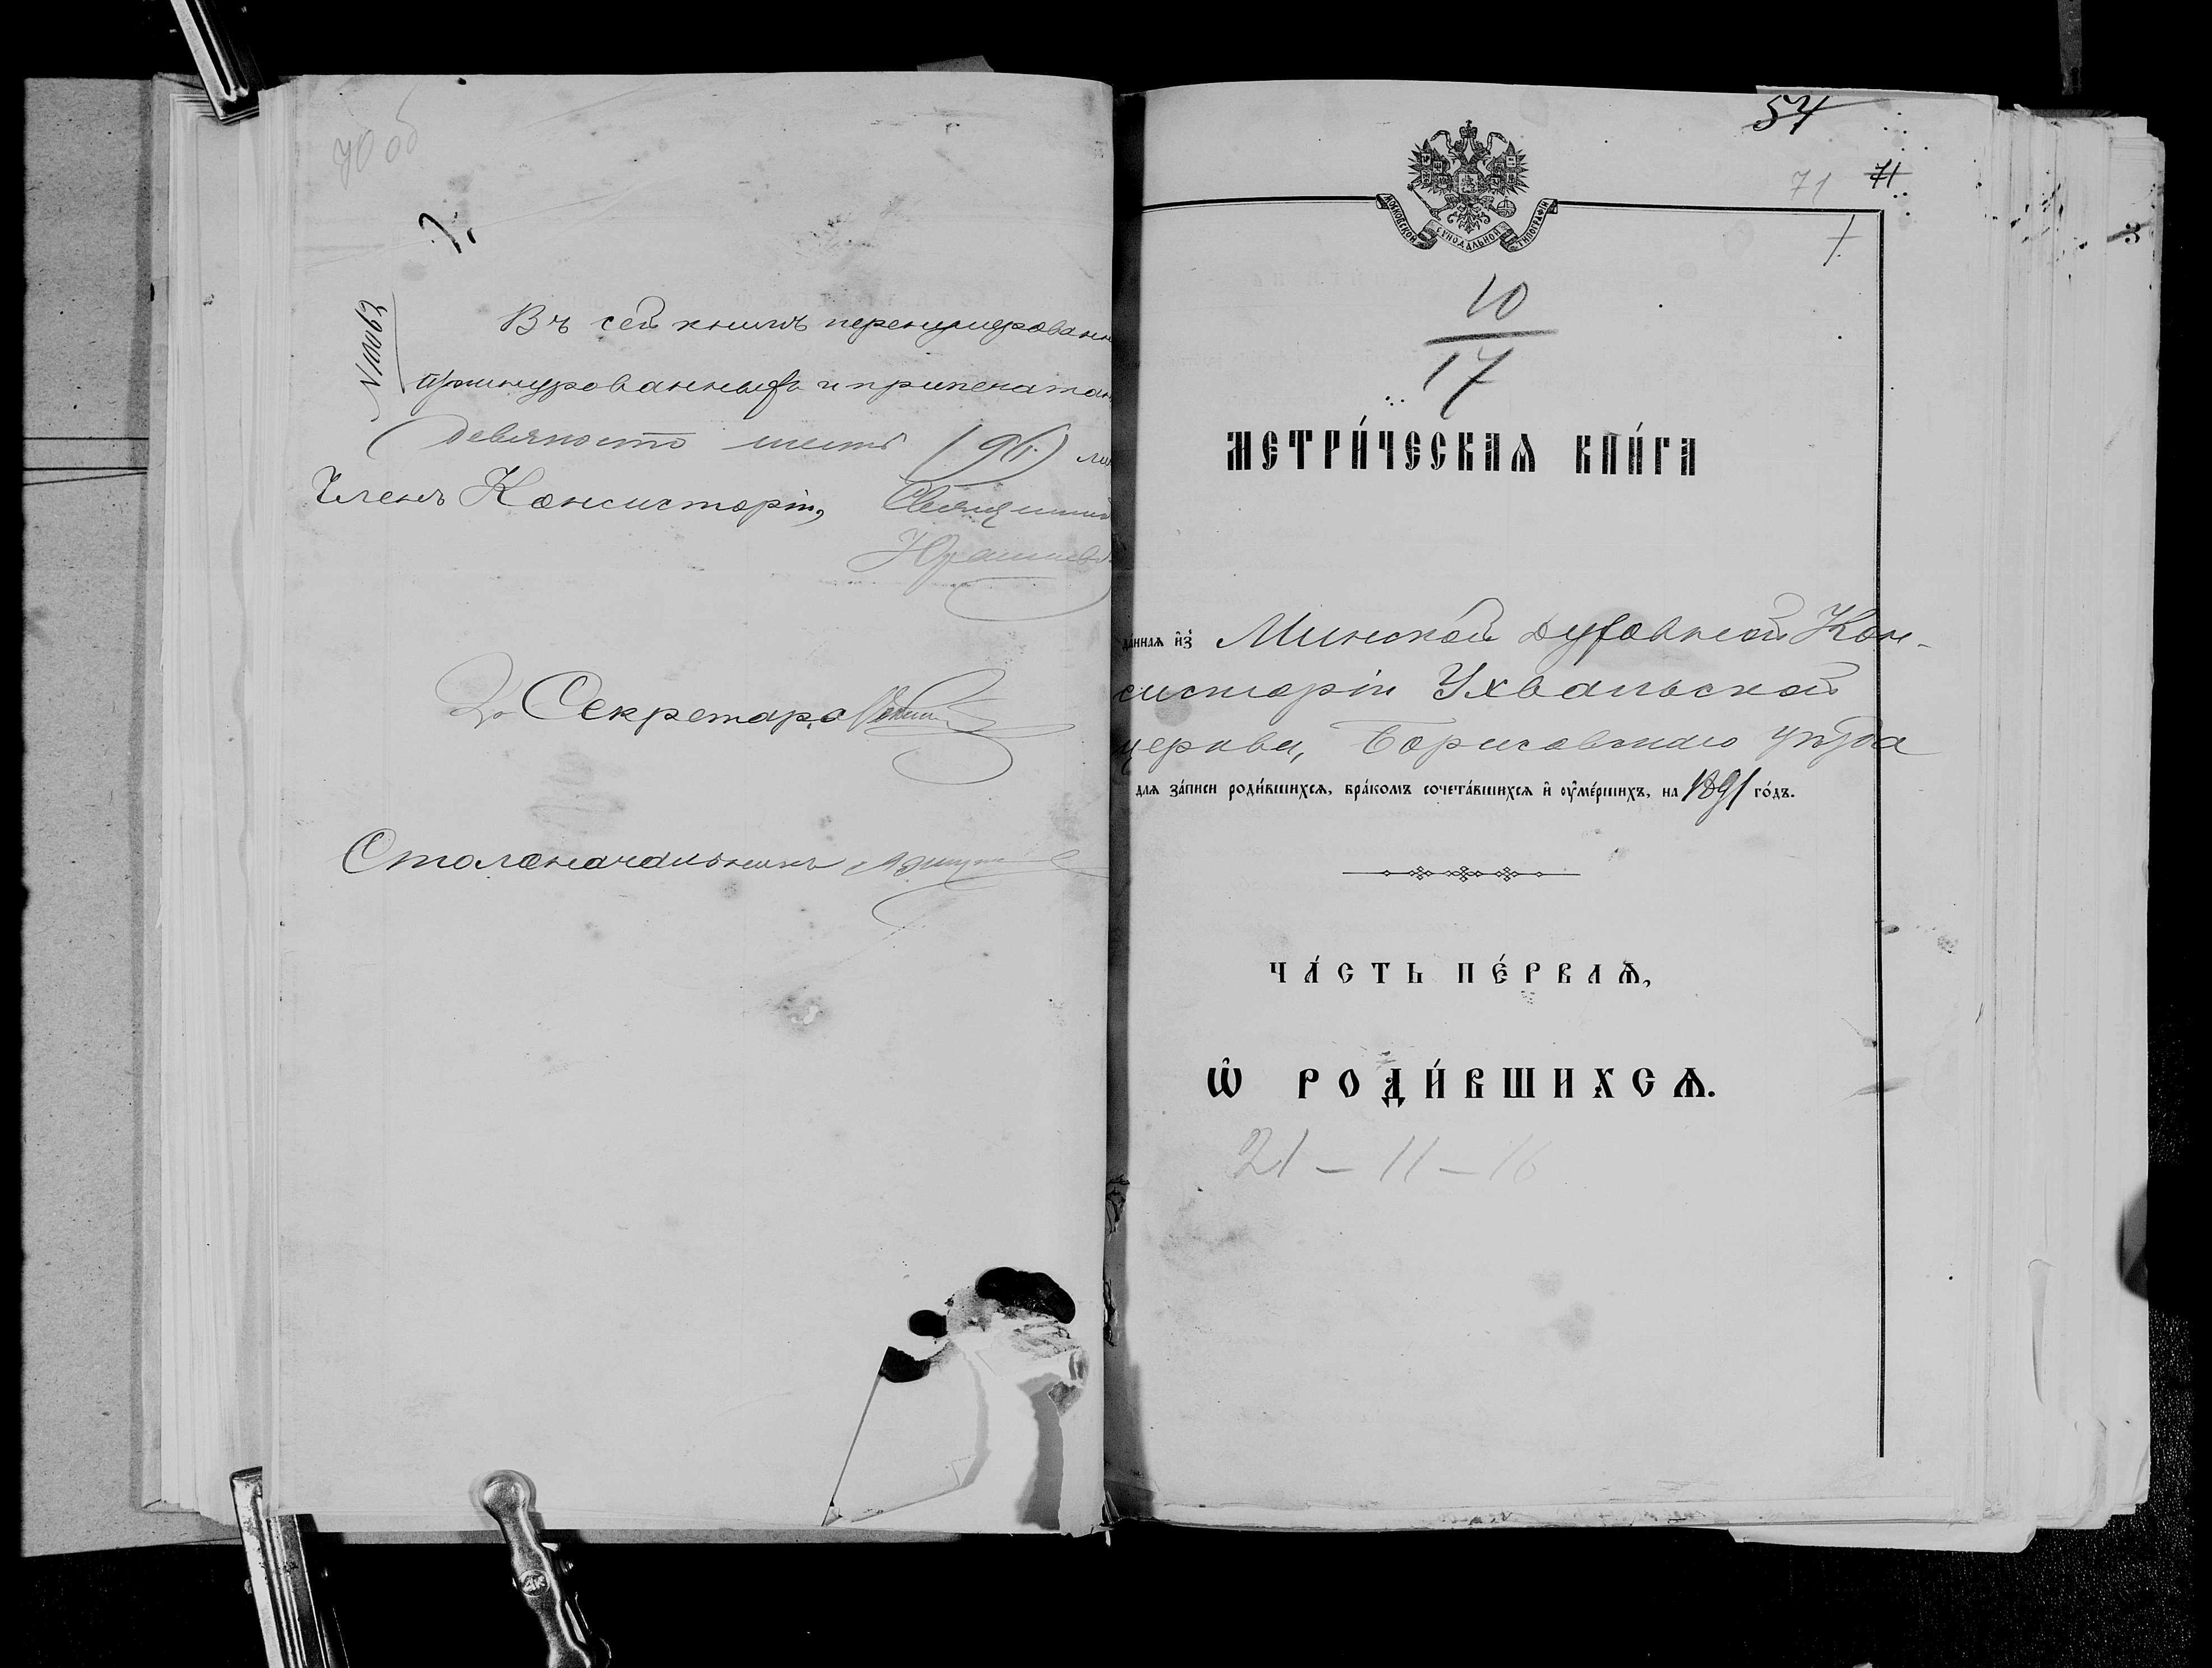 70 об
Въ сей книгѣ перенумерованн
прошнурованныхъ и припечатан
девяносто шесть (96) ли
Членъ Консисторіи, Священник
Секретарь
Столоначальникъ
54
71 71
МОСКОВСКОЙ СѴНОДАЛЬНОЙ ТИПОГРАФІИ
10
17
МЕТРИ́ЧЕСКАѦ КНИ́ГА
да́ннаѧ и҆з̾ Минской Духовной Кон-
систоріи Ухвальской
церкви, Борисовскаго уѣзда
длѧ за́писи роди́вшихсѧ, бра́комъ сочета́вшихсѧ и҆ ѹ҆ме́ршихъ, на 1891 го́дъ.
ЧА́СТЬ ПЕ́РВАѦ,
Ѽ РОДИ́ВШИХСѦ.
21 – 11 – 16